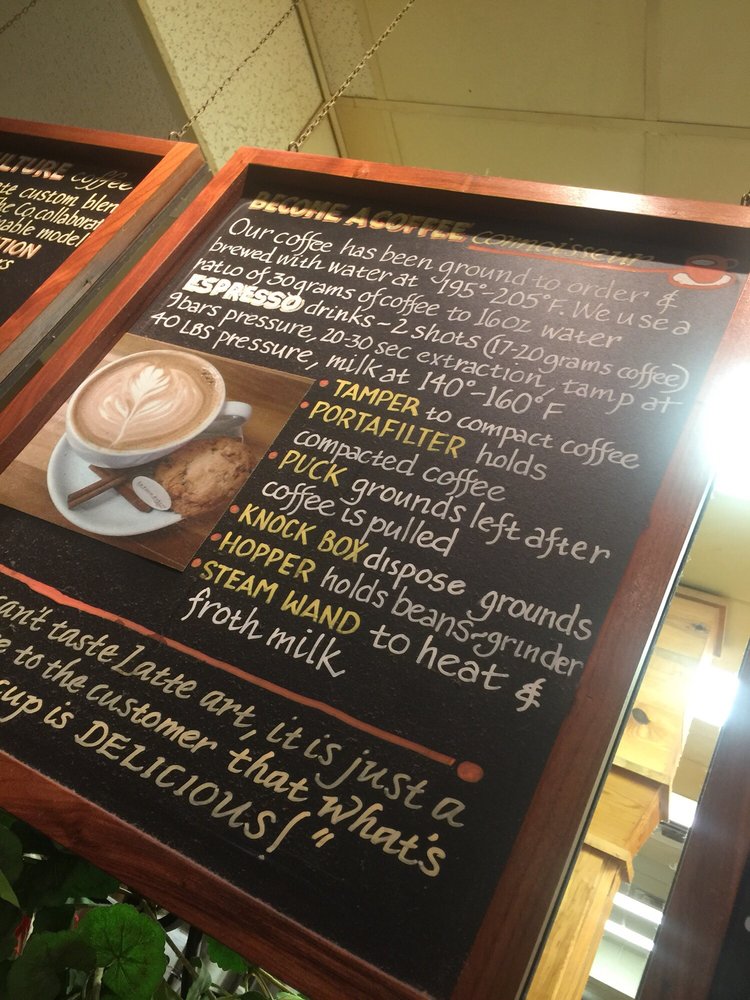 BECOME A COFFEE connoisseur
Our coffee has been ground to order &
brewed with water at 195°-205°F. We use a
ratio of 30 grams of coffee to 16oz water
ESPRESSO drinks ~ 2 shots (17-20 grams coffee)
9 bars pressure, 20-30 sec extraction, tamp at
40 LBS pressure, milk at 140°-160°F
• TAMPER to compact coffee
• PORTAFILTER holds
compacted coffee
• PUCK grounds left after
coffee is pulled
• KNOCK BOX dispose grounds
• HOPPER holds beans~grinder
• STEAM WAND to heat &
froth milk
can't taste Latte art, it is just a
to the customer that what's
cup is DELICIOUS!"
coffee
custom blen
Co. collaborat
model